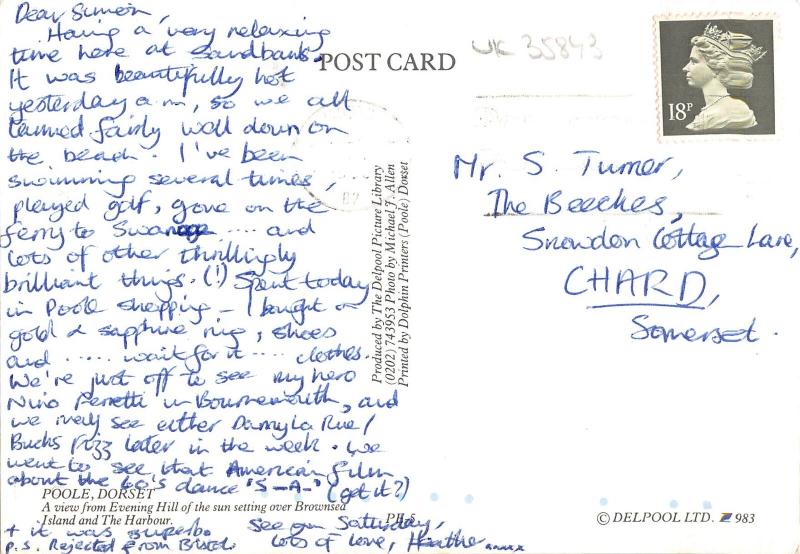 Dear Simon,
Having a very relaxing
time here at Sandbanks.
It was beautifully hot
yesterday a.m, so we all
tanned fairly well down on
the beach. I've been
swimming several times,
played golf, gone on the
ferry to Swanage .... and
lots of other thrillingly
brilliant things. (!) Spent today
in Poole shopping - I bought a
gold & sapphire ring, shoes
and ..... wait for it .... clothes.
We're just off to see my hero
Nino Ferretti in Bournemouth, and
we may see either Danny La Rue/
Bucks Fizz later in the week. We
went to see that American film
about the 60's dance 'S-A-' (get it?)
+ it was superb.
See you Saturday,
Lots of love, Heather xxxx
p.s. Rejected from Bristol.
POOLE, DORSET
A view from Evening Hill of the sun setting over Brownsea
Island and The Harbour.
PH.S
POST CARD
Produced by The Delpool Picture Library
(0202) 743953 Photo by Michael J. Allen
Printed by Dolphin Printers (Poole) Dorset
UK 35843
18P
Mr. S. Turner,
The Beeches,
Snowdon Cottage Lane,
CHARD,
Somerset.
© DELPOOL LTD. 983